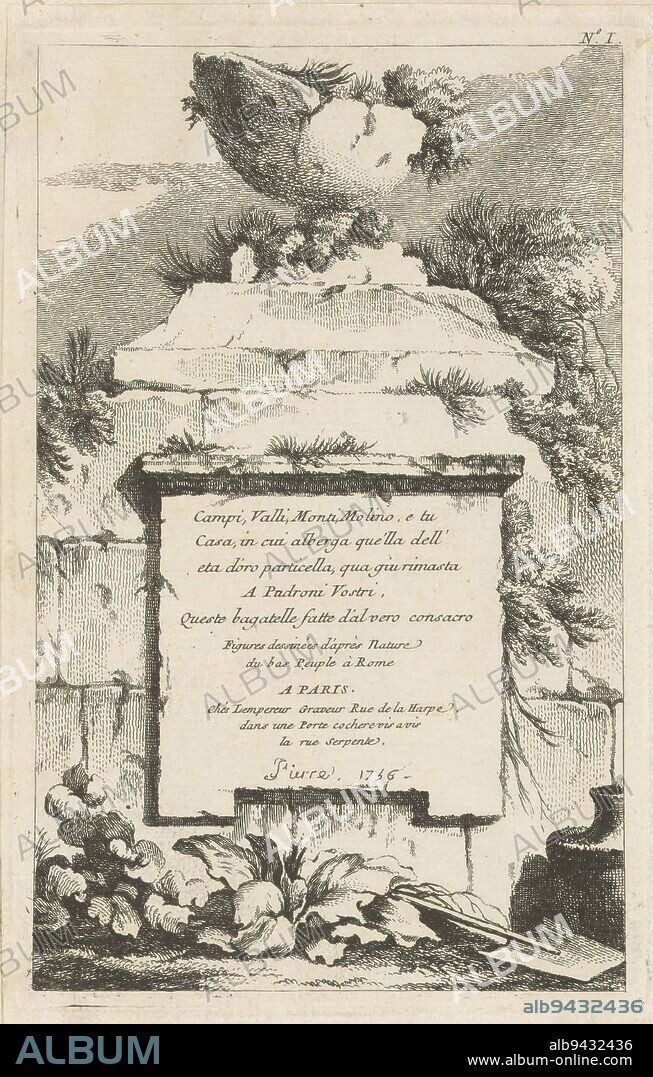 N.º I.
Campi, Valli, Monti, Molino, e tu
Casa, in cui alberga quella dell'
eta d'oro particella, qua giu rimasta
A Padroni Vostri,
Queste bagatelle fatte d'al vero consacro
Figures dessinées d'après Nature
du bas Peuple à Rome
A PARIS.
Chés Lempereur Graveur Rue de la Harpe
dans une Porte cochere vis avis
la rue Serpente.
Pierre. 1756-
alb9432436
ALBUM
alb9432436
www.album-online.com